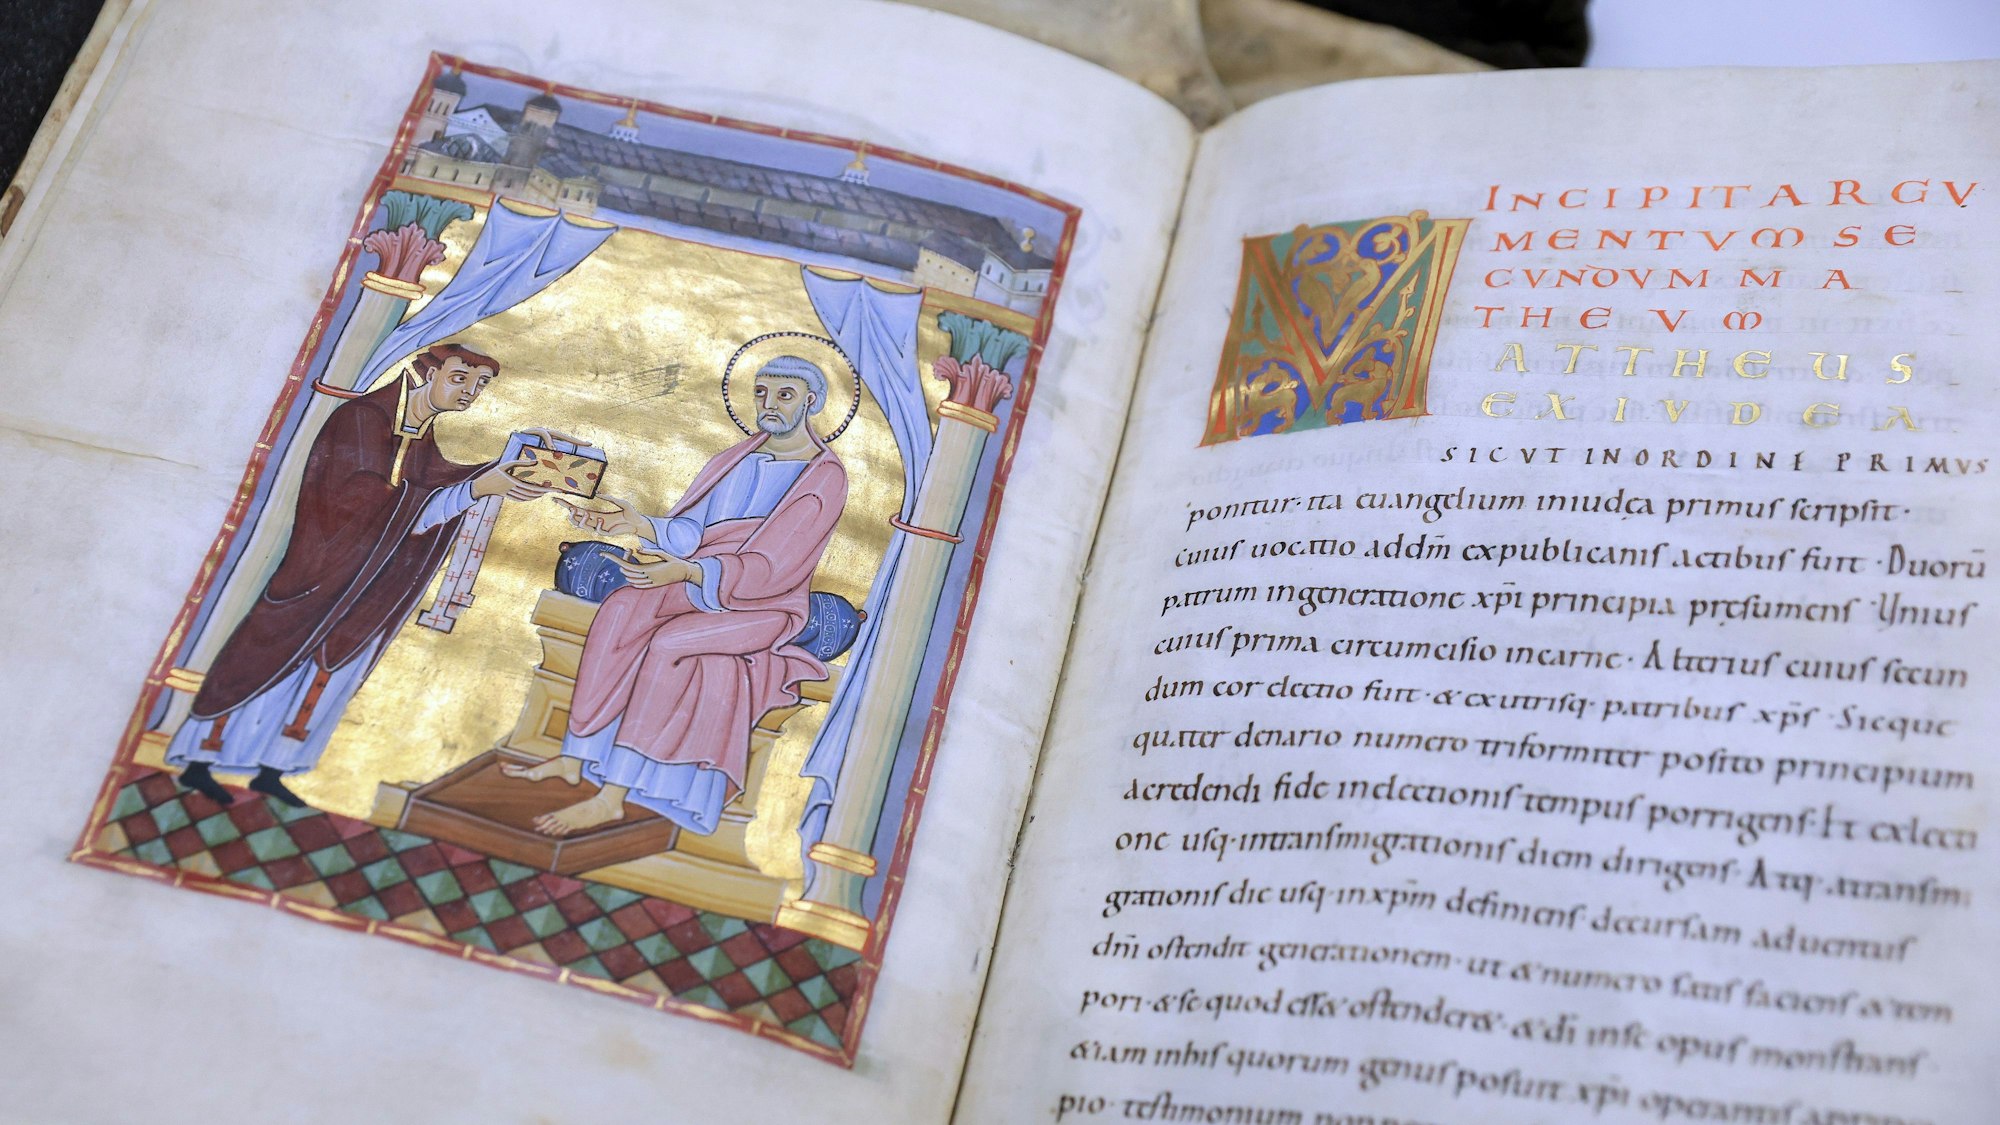 INCIPIT ARGV
MENTVM SE
CVNDVM MA
THEVM
MATTHEUS
EX IVDEA
SICVT IN ORDINE PRIMVS
ponitur· ita euangelium in iudęa primus scripsit·
cuius uocatio ad dn̄m ex publicanis actibus fuit· Duorū
patrum in generatione xp̄i principia pręsumens· Vnius
cuius prima circumcisio in carne· Alterius cuius secun
dum cor electio fuit· & ex utrisq· patribus xp̄s· Sicque
quater denario numero triformiter posito principium
a credendi fide in electionis tempus porrigens· Et ex electi
one usq· in transmigrationis diem dirigens· Atq· a transmi
grationis die usq· in xp̄m definiens· decursam aduentus
dn̄i ostendit generationem· ut & numero satis faciens & tem
pori· & se quod ess& ostender&· & dī in se opus monstrans
&iam in his quorum genus posuit xp̄i operantis
pio· testimonium non